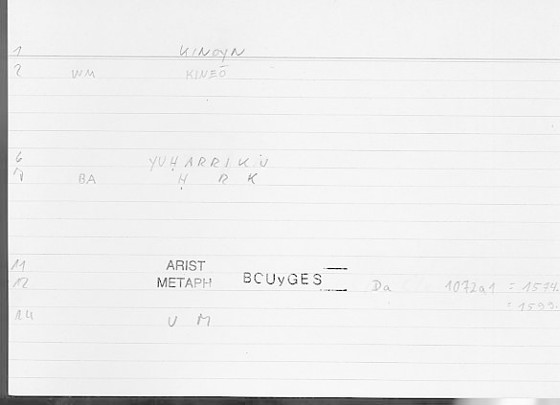 1 KINOYN
2 WM KINEŌ
6 YUḤARRIKU
BA Ḥ R K
11 ARIST
12 METAPH BOUyGES Da 1072a1 = 1594.
= 1599.
U M